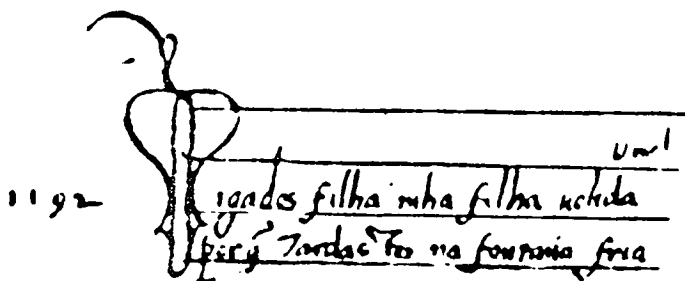 1192
igades filha mha filha uelida
porq̃ tardastes na fontana fria